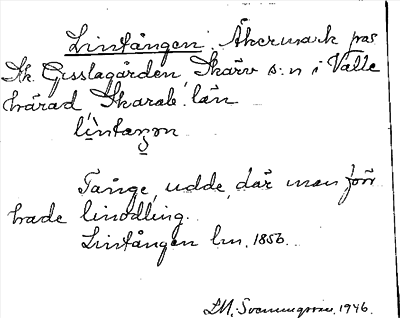 Lintången. Åkermark på
St. Gisslagården Skärv s:n i Valle
härad Skarab. län
lìntaŋən
Tånge, udde, där man förr
hade linodling.
Lintången lm. 1856.
1946.